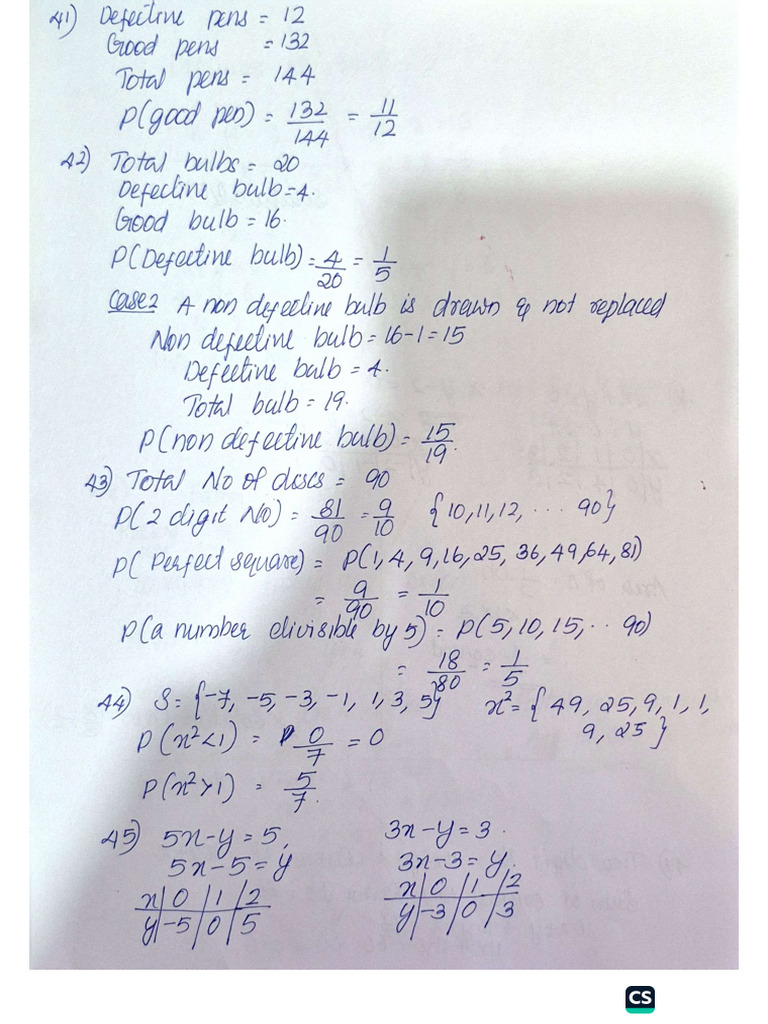 41) Defective pens = 12
Good pens = 132
Total pens = 144
P(good pen) = 132/144 = 11/12
42) Total bulbs = 20
Defective bulb = 4.
Good bulb = 16.
P(Defective bulb) = 4/20 = 1/5
Case 2 A non defective bulb is drawn & not replaced
Non defective bulb = 16-1 = 15
Defective bulb = 4.
Total bulb = 19.
P(non defective bulb) = 15/19.
43) Total No of discs = 90
P(2 digit No) = 81/90 = 9/10 {10, 11, 12, ... 90}
P(Perfect square) = P(1, 4, 9, 16, 25, 36, 49, 64, 81)
= 9/90 = 1/10
P(a number divisible by 5) = P(5, 10, 15, .. 90)
= 18/80 = 1/5
44) S = {-7, -5, -3, -1, 1, 3, 5} x² = {49, 25, 9, 1, 1,
9, 25}
P(x²<1) = P 0/7 = 0
P(x²>1) = 5/7.
45) 5x-y = 5, 3x-y = 3.
5x-5 = y 3x-3 = y
x | 0 | 1 | 2 x | 0 | 1 | 2
y | -5 | 0 | 5 y | -3 | 0 | 3
CS